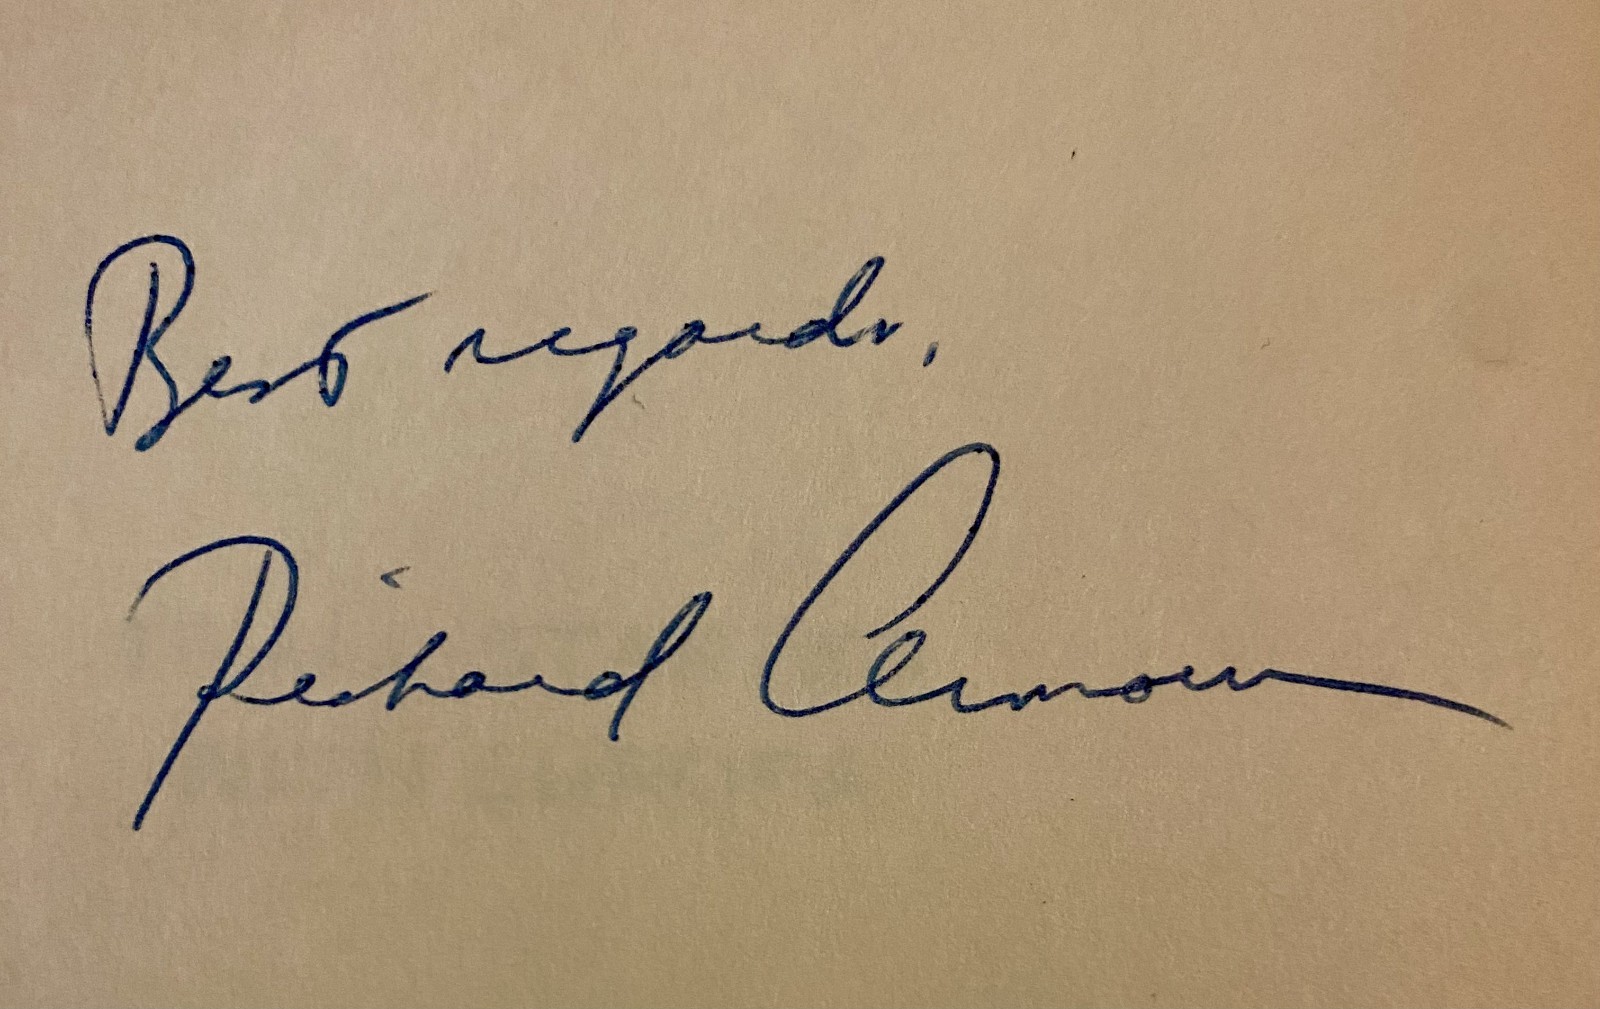 Best regards,
Richard Armour